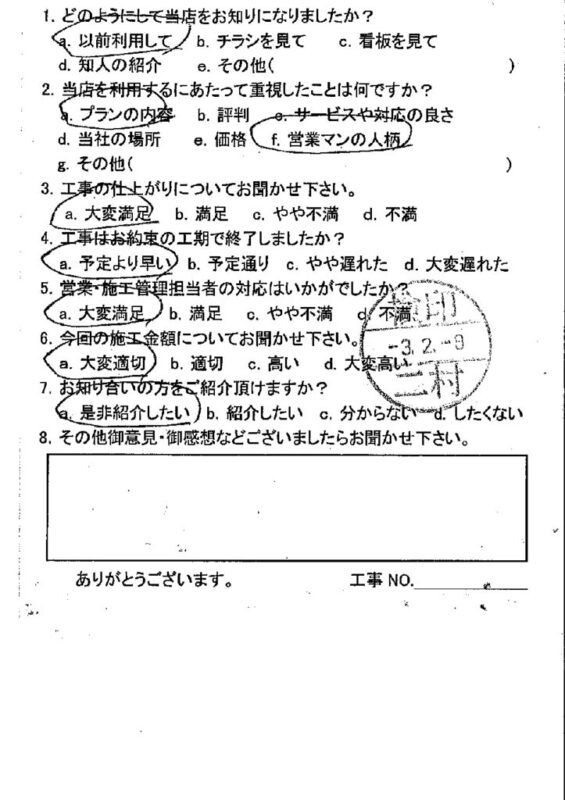 1. どのようにして当店をお知りになりましたか?
a. 以前利用して b. チラシを見て c. 看板を見て
d. 知人の紹介 e. その他( )
2. 当店を利用するにあたって重視したことは何ですか?
a. プランの内容 b. 評判 c. サービスや対応の良さ
d. 当社の場所 e. 価格 f. 営業マンの人柄
g. その他( )
3. 工事の仕上がりについてお聞かせ下さい。
a. 大変満足 b. 満足 c. やや不満 d. 不満
4. 工事はお約束の工期で終了しましたか?
a. 予定より早い b. 予定通り c. やや遅れた d. 大変遅れた
5. 営業・施工管理担当者の対応はいかがでしたか?
a. 大変満足 b. 満足 c. やや不満 d. 不満
6. 今回の施工金額についてお聞かせ下さい。
a. 大変適切 b. 適切 c. 高い d. 大変高い
7. お知り合いの方をご紹介頂けますか?
a. 是非紹介したい b. 紹介したい c. 分からない d. したくない
8. その他御意見・御感想などございましたらお聞かせ下さい。
検印
-3.2.-9
三村
ありがとうございます。 工事 NO.